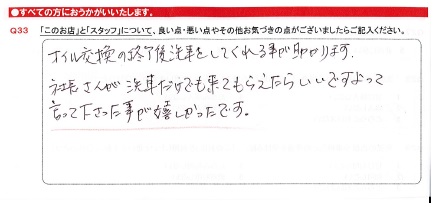 ●すべての方におうかがいいたします。
Q33 「このお店」と「スタッフ」について、良い点・悪い点やその他お気づきの点がございましたらご記入ください。
オイル交換の終了後洗車をしてくれる事が助かります.
社長さんが洗車だけでも来てもらえたらいいですよって
言って下さった事が嬉しかったです。